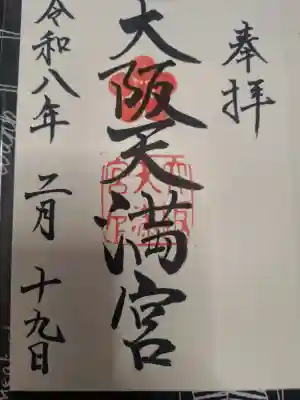 奉拝
大阪天満宮
令和八年 二月 十九日